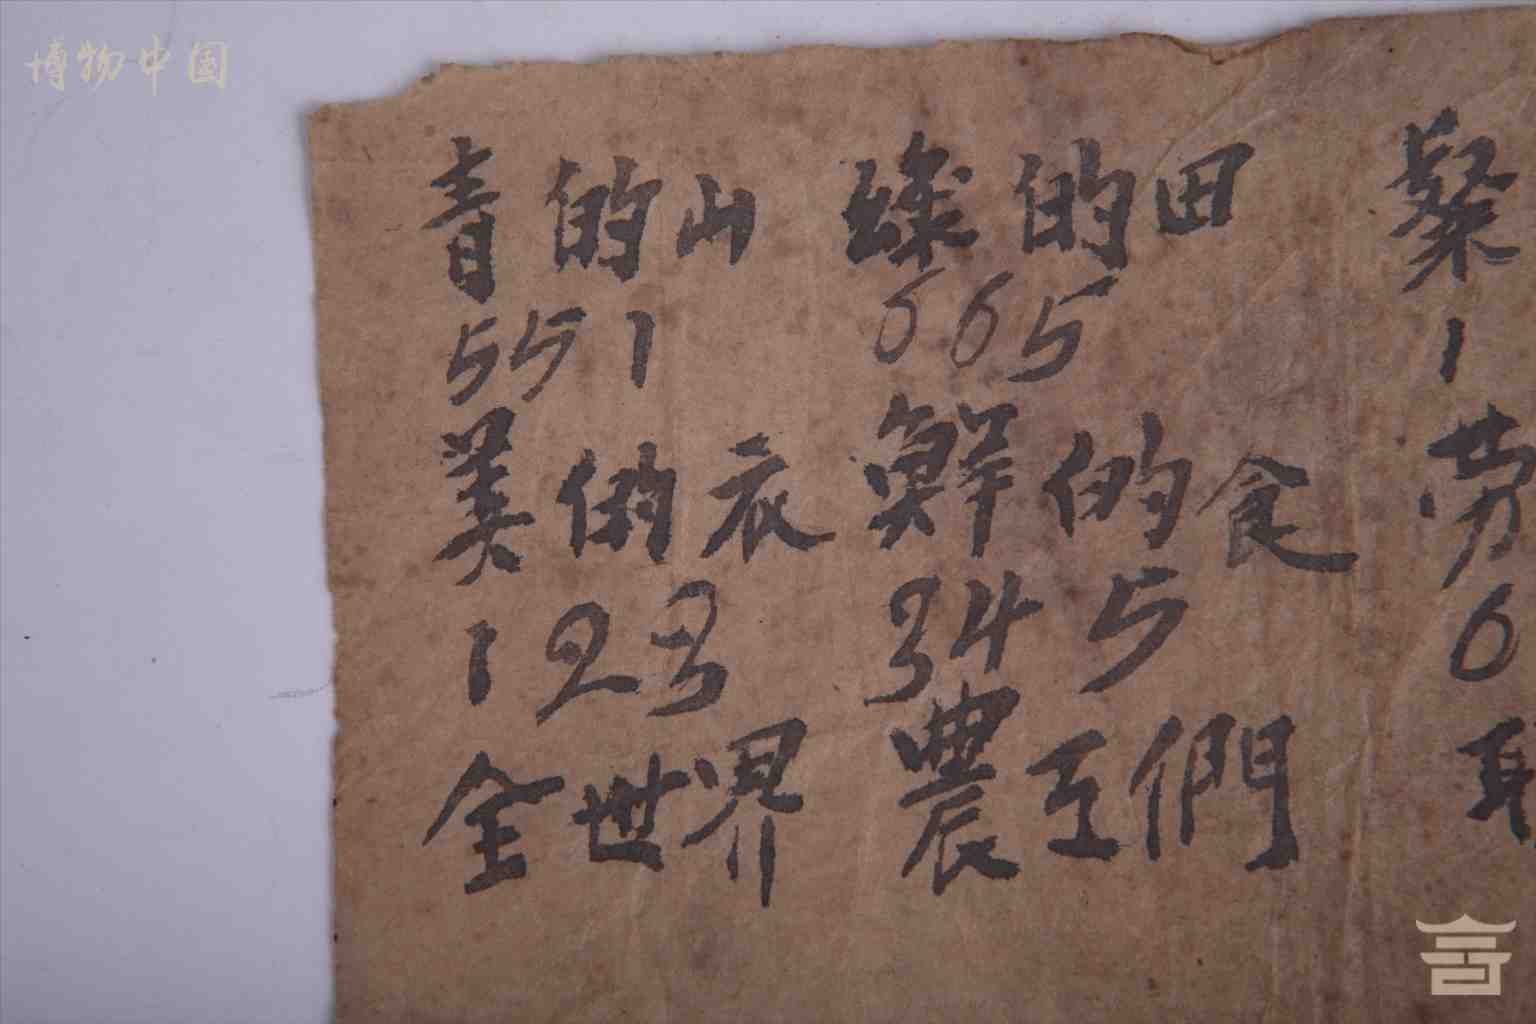 博物中国
青的山 綠的田 粲
551 665 1
美的衣 鮮的食 劳
123 345 6
全世界 農工們